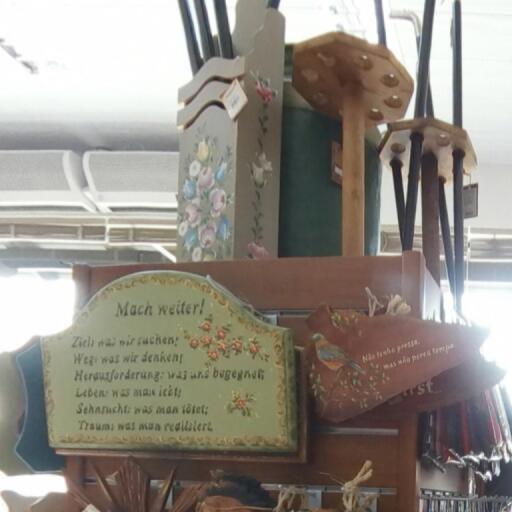 Mach weiter!
Ziel: was wir suchen;
Weg: was wir denken;
Herausforderung: was uns begegnet;
Leben: was man lebt;
Sehnsucht: was man tötet;
Traum: was man realisiert.
Não tenha pressa,
mas não perca tempo.